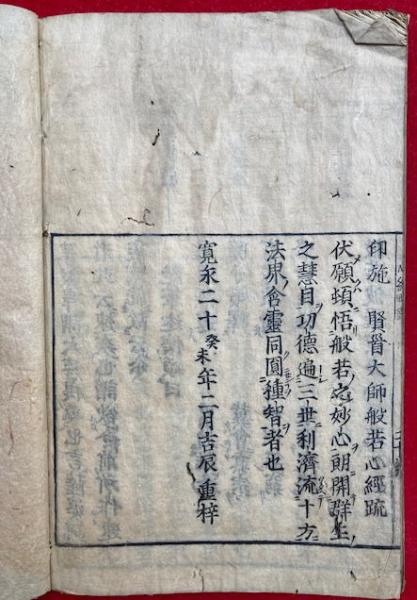 印施 賢首大師般若心經疏
伏願頓悟般若之妙心朗開群生
之慧目功德遍三世利濟流十方
法界含靈同圓種智者也
寬永二十癸未年二月吉辰 重梓